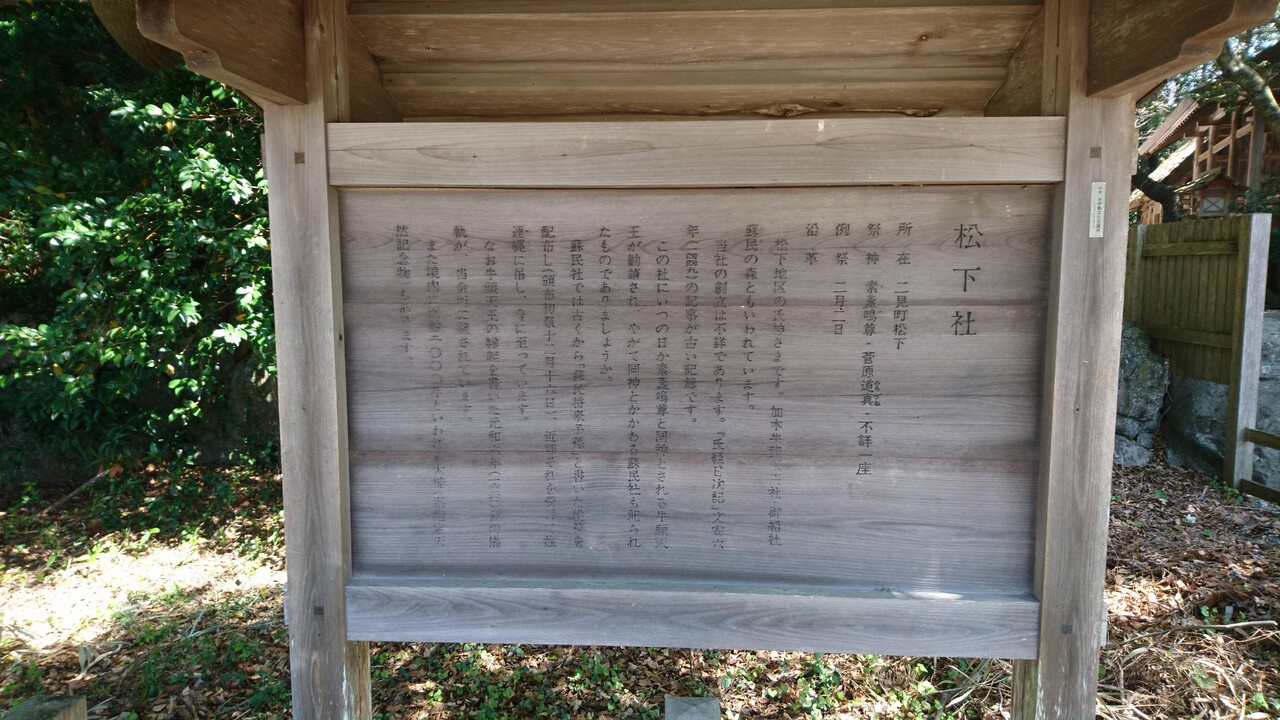 松下社
所在 二見町松下
祭神 素盞鳴尊・菅原道真・不詳一座
例祭 二月十一日
沿革
松下地区の氏神さまです。加木牛頭天王社・御船社
蘇民の森ともいわれています。
当社の創立は不詳であります。『氏経日次記』文安六
年(一四四九)の記事が古い記録です。
この社にいつの日か素盞鳴尊と同神とされる牛頭天
王が勧請され、やがて同神とかかわる蘇民社も祀られ
たものでありましょうか。
蘇民社では古くから「蘇民将来子孫」と書いた桃符を
配布し(頒布初祭十二月十六日)、近郷それを受けて注
連縄に吊し、今に至っています。
なお牛頭天王の縁起を書いた元和六年(一六二〇)の儀
軌が、当会所に残されています。
また境内に
然記念物)もあります。